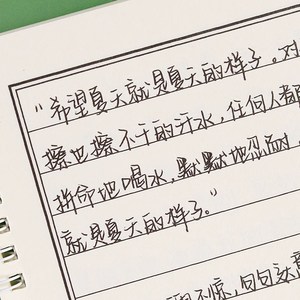 “希望夏天就是夏天的样子。对
擦也擦不干的汗水，任何人都
拼命地喝水，默默地忍耐，
就是夏天的样子。”
不惊，句句达意